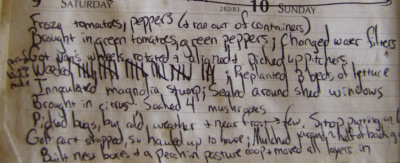 9 SATURDAY 282/83 10 SUNDAY
Froze tomatoes, peppers (& ran out of containers)
Brought in green tomatoes, green peppers; Changed water filters
Got van's wheels rotated & aligned; Picked up pitchers
Weeded ; Replanted 3 beds of lettuce
Innoculated magnolia stump; Sealed around shed windows
Brought in citrus. Soaked 4 mushrooms
Picked bugs, but cold weather & near frost → few. Stop putting on
Golf part stopped, so hauled up to house; Mulched half of back
Built nest boxes & perch in pasture coop & moved all layers in